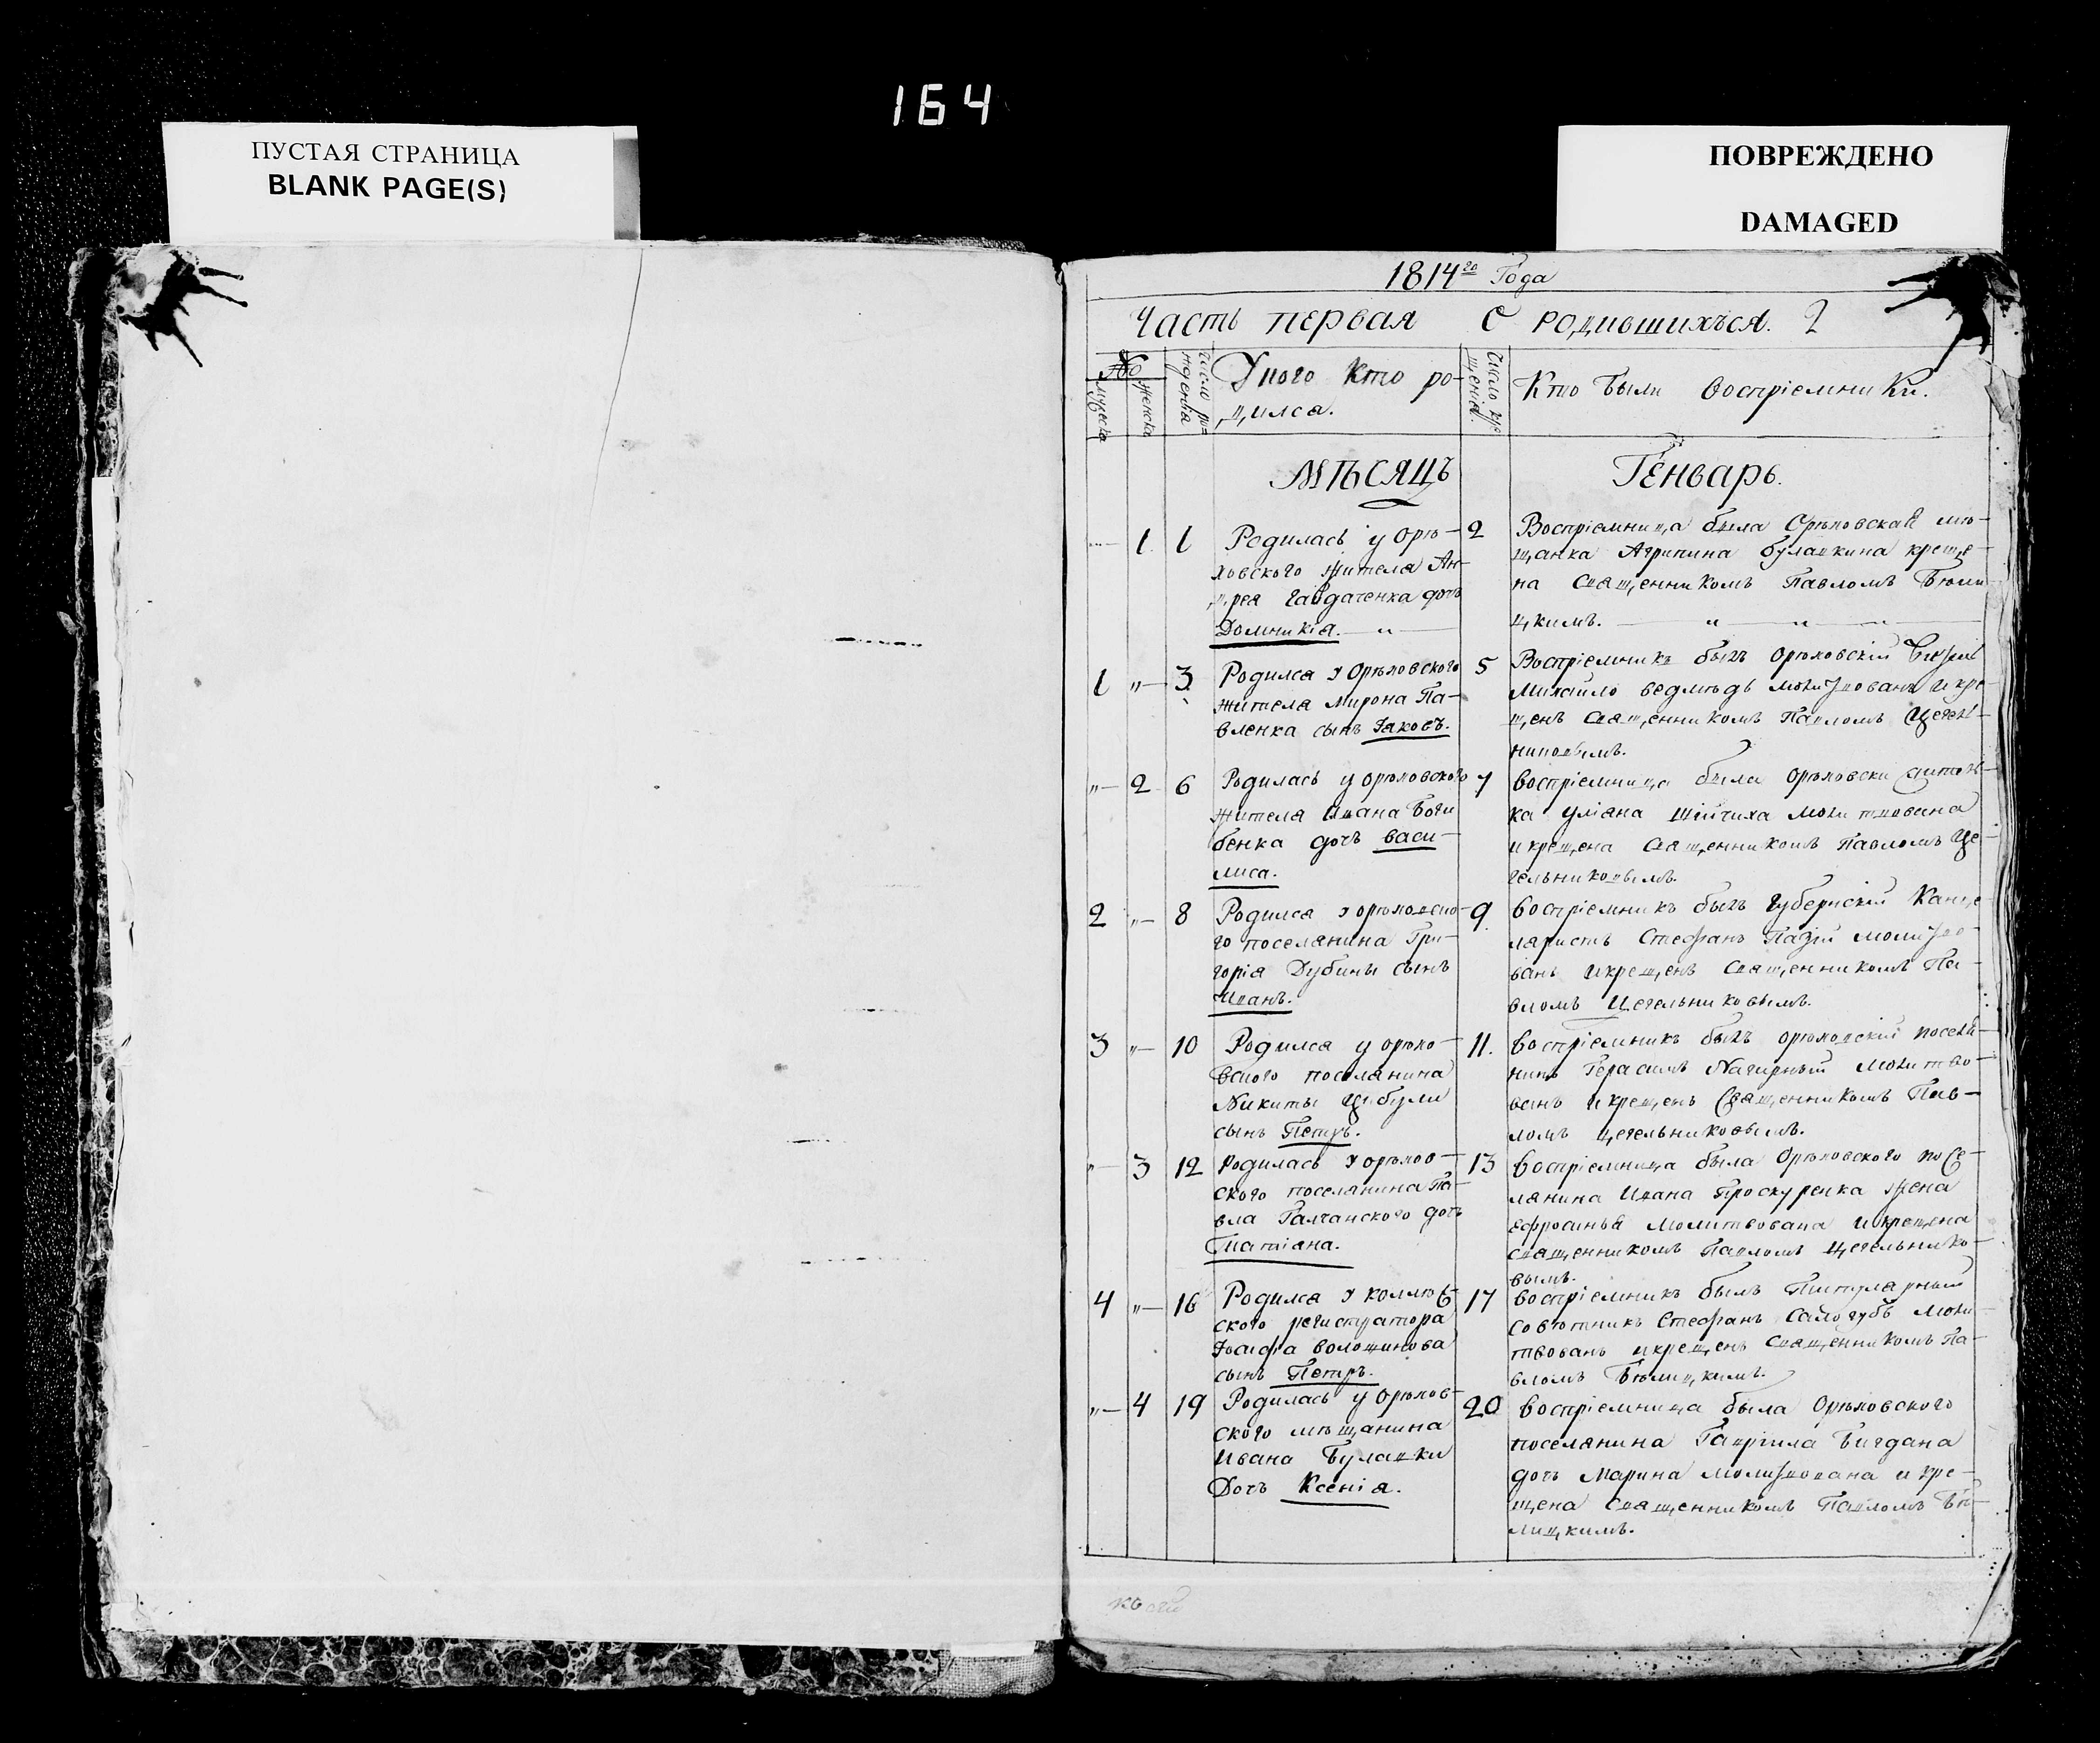 164
ПУСТАЯ СТРАНИЦА
BLANK PAGE(S)
ПОВРЕЖДЕНО
DAMAGED
1814го Года
Часть первая О родившихъся. 2
№
мужеска
женска
число ро=
жденія
У кого Кто ро-
дился.
Число кре
щенія
Кто были воспріемники.
МѢСЯЦЪ Генварь.
1 1 Родилась у Орѣ-
ховского жителя Ан-
дрея Гайдаченка дочь
Домникія. — „ —
2 Воспріемница была Орѣховская мѣ-
щанка Агрипина булашкина креще-
на Священникомъ Павломъ Бѣли
цкимъ. — „ — „ —
1 „— 3 Родился у Орѣховского
жителя Мирона Па-
вленка сынъ Іаковъ.
5 Воспріемникъ былъ Орѣховскій
Михайло ведмѣдь молитвованъ и кре
щенъ Священникомъ Павломъ Цегель-
никовымъ.
„— 2 6 Родилась у орѣховского
жителя Ивана
бенка дочь Васи-
лиса.
7 воспріемница была орѣховски
ка Уліана молитвована
и крещена Священникомъ Павломъ Це-
гельниковымъ.
2 „— 8 Родился у орѣховско-
го поселянина Гри-
горія Дубины сынъ
Иванъ.
9 воспріемникъ былъ Губернскій Канце
ляристъ Стефанъ Пазій молитво-
ванъ и крещенъ Священникомъ Па-
вломъ Цегельниковымъ.
3 „— 10 Родился у орѣхо-
вского поселянина
Никиты Цибули
сынъ Петръ.
11. воспріемникъ былъ орѣховскій поселя-
нинъ Герасимъ Нагирный молитво-
ванъ и крещенъ Священникомъ Пав-
ломъ цегельниковымъ.
„— 3 12 Родилась у орѣхов-
ского поселянина Па-
вла Галчанского дочь
Татіана.
13 воспріемница была Орѣховского посе-
лянина Ивана Проскуренка жена
ефросинья Молитвована и крещена
священникомъ Павломъ Цегельнико-
вымъ.
4 „— 16 Родился у коллѣж-
ского регистратора
Іоасафа волошинова
сынъ Петръ.
17 воспріемникъ былъ Титулярный
Совѣтникъ Стефанъ Салогубъ моли-
твованъ и крещенъ Священникомъ Па-
вломъ Бѣлицкимъ.
„— 4 19 Родилась у Орѣхов-
ского мѣщанина
Ивана Булашки
Дочь Ксенія.
20 воспріемница была Орѣховского
поселянина Гавріила Бигдана
дочь Марина молитвована и кре-
щена Священникомъ Павломъ Бѣ-
лицкимъ.